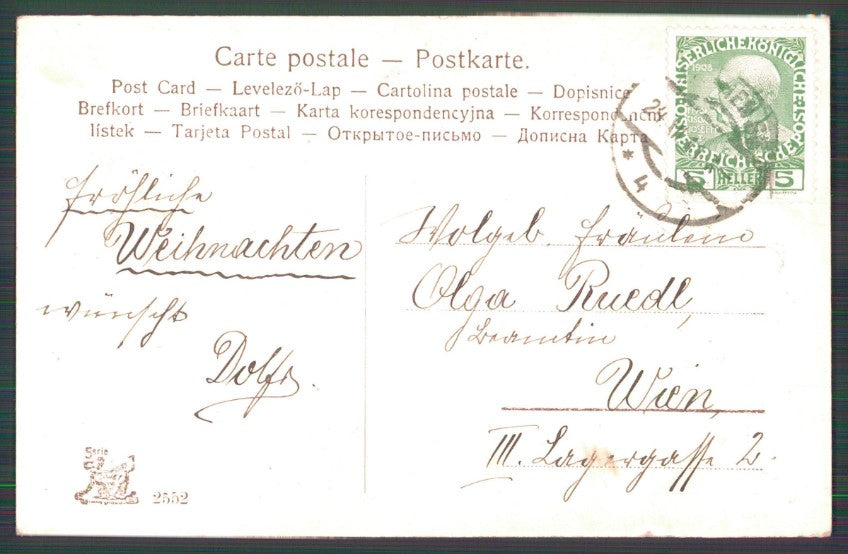 Carte postale — Postkarte.
Post Card — Levelező-Lap — Cartolina postale — Dopisnice
Brefkort — Briefkaart — Karta korespondencyjna — Korrespondenční
lístek — Tarjeta Postal — Открытое-письмо — Дописна Карта
1908
KAISERLICHEKÖNIGLICHE
ÖSTERREICHISCHEPOST
5 HELLER 5
24
* 4
fröhliche
Weihnachten
wünscht
Dolfi.
Wolgeb. Fräulein
Olga Ruedl,
Beamtin
Wien,
III. Lagergasse 2.
Serie
2552